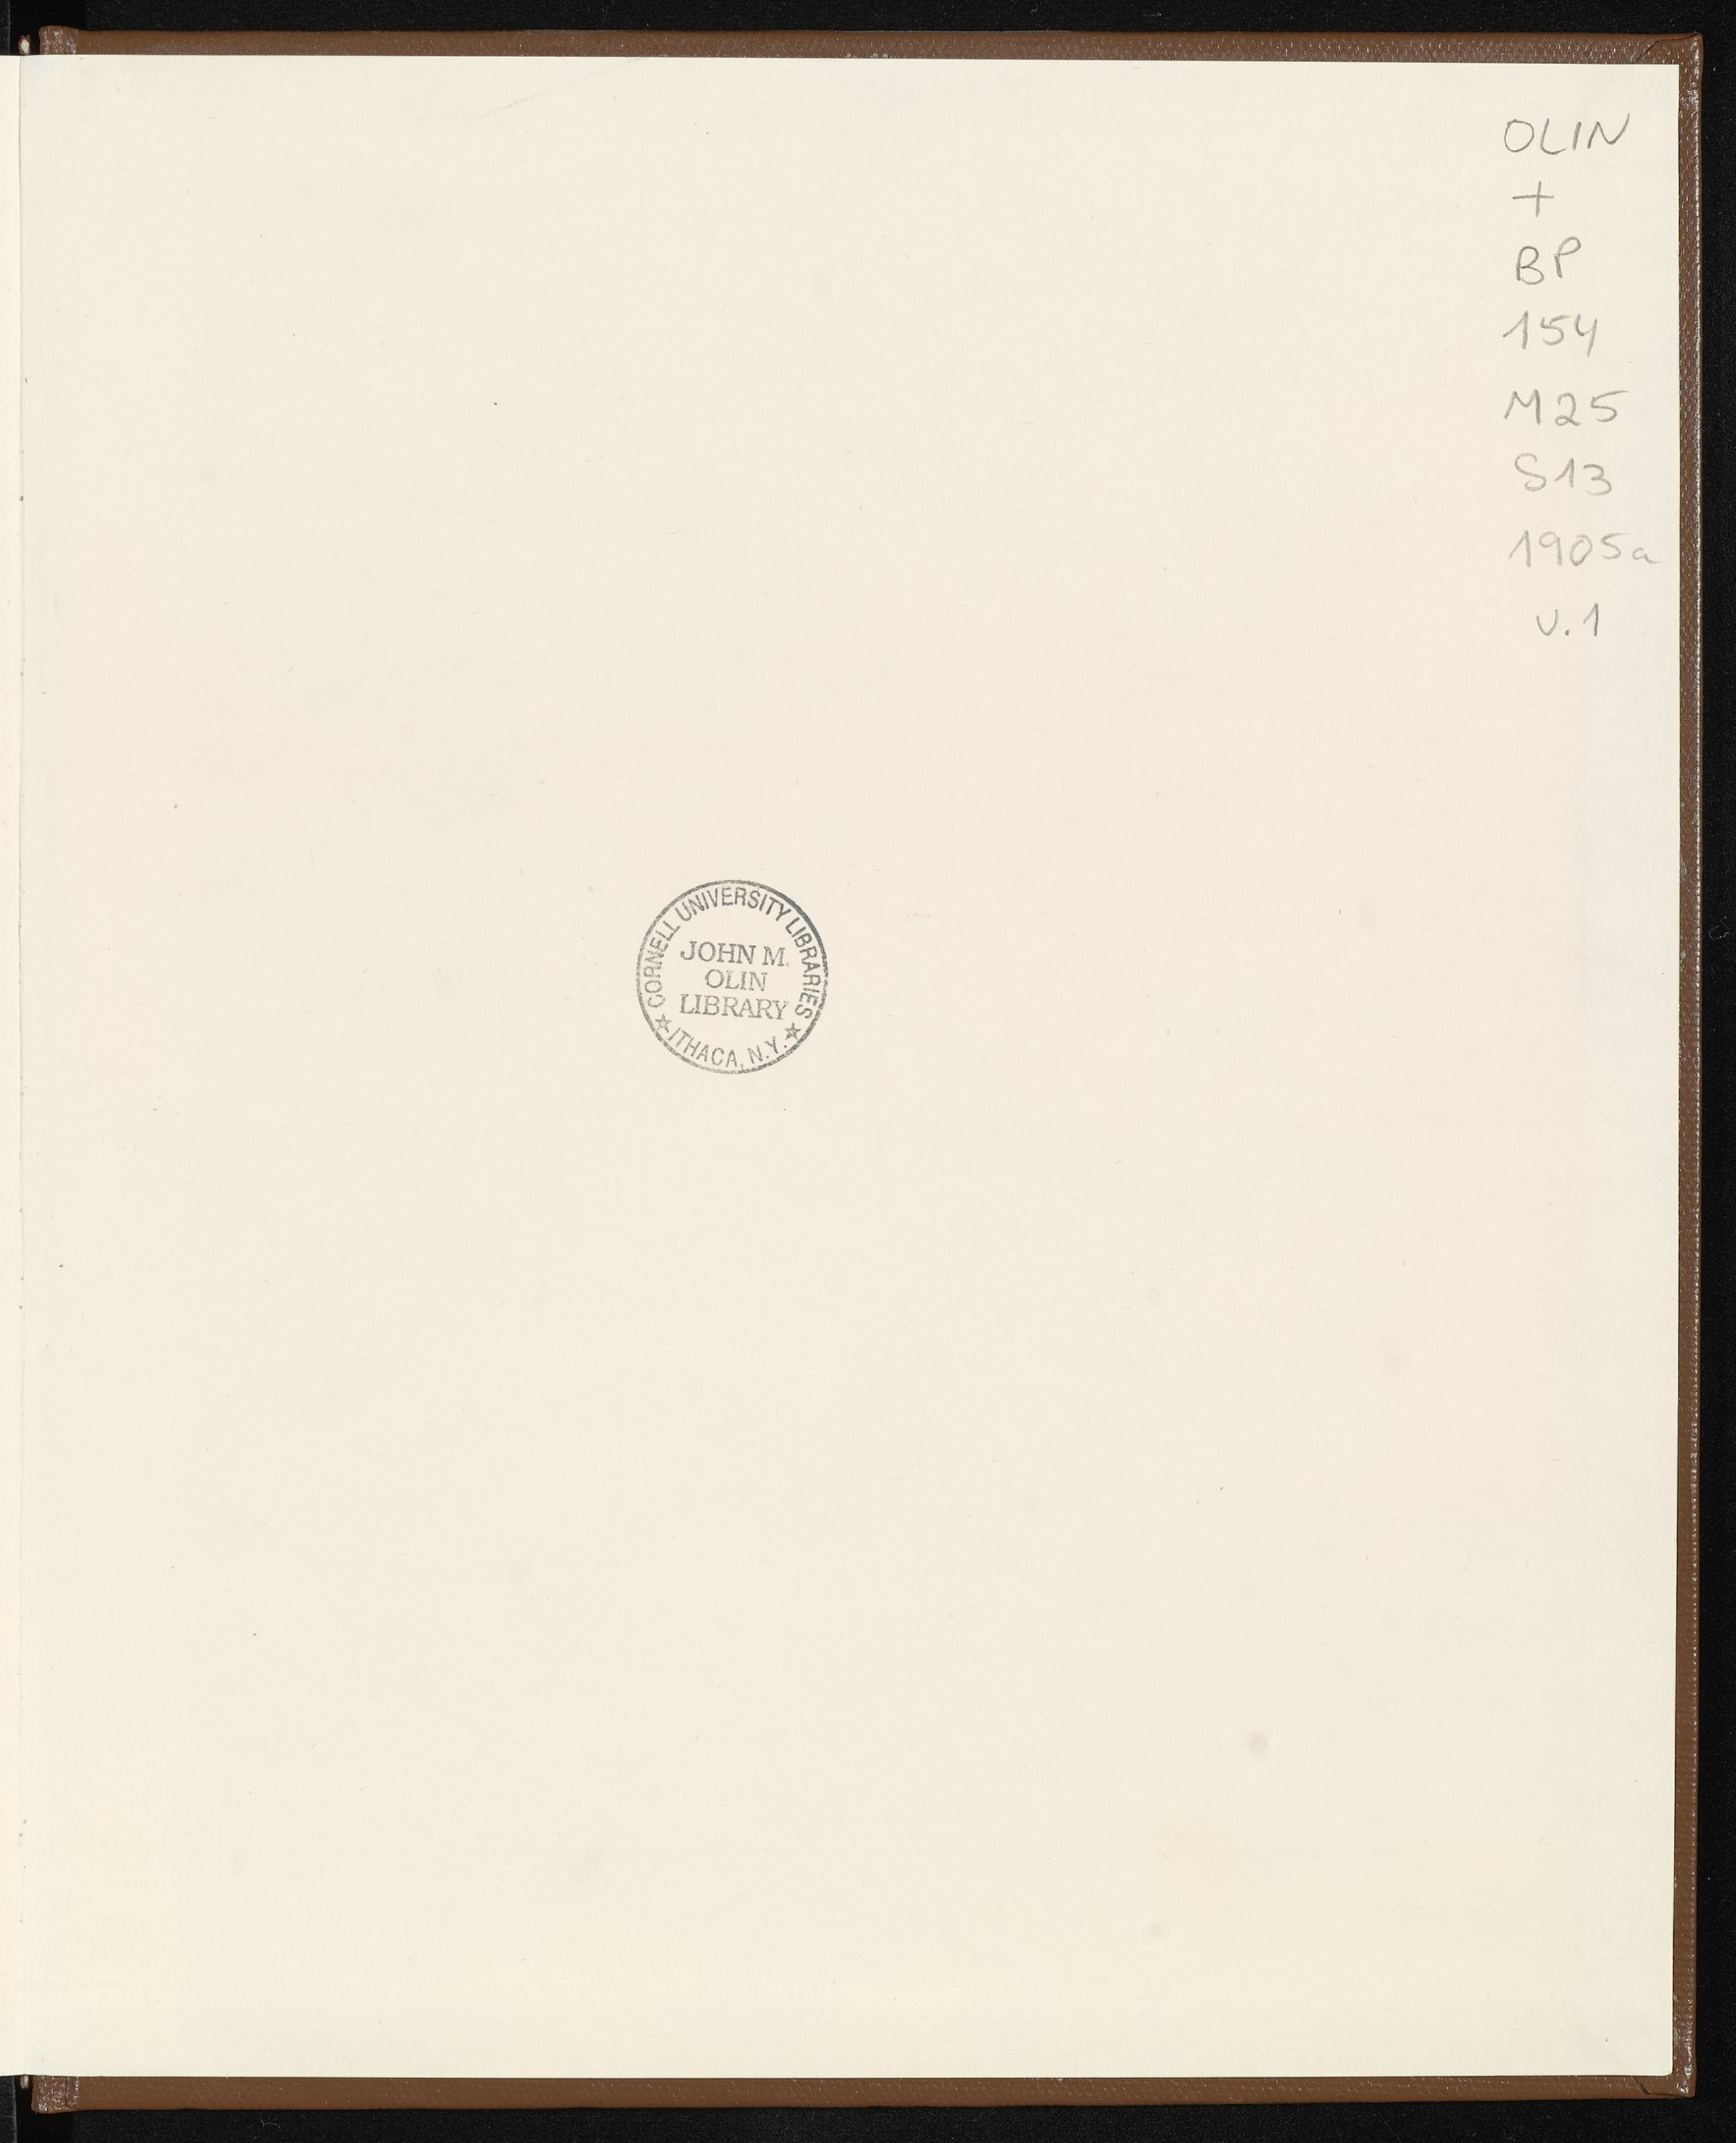 OLIN
+
BP
154
M25
S13
1905a
v.1
CORNELL UNIVERSITY LIBRARIES
JOHN M.
OLIN
LIBRARY
☆ ITHACA, N.Y. ☆